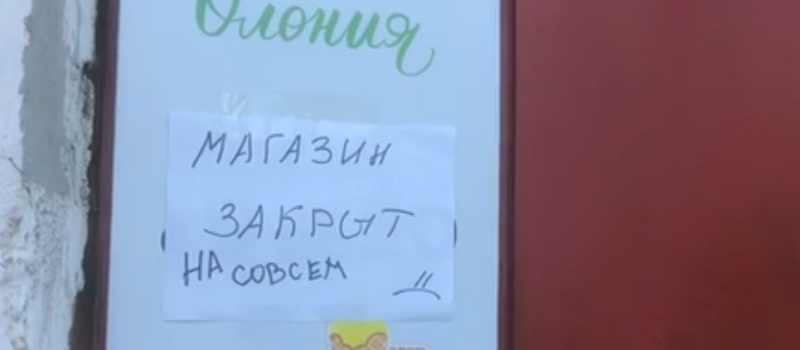 Олония
МАГАЗИН
ЗАКРЫТ
НА СОВСЕМ